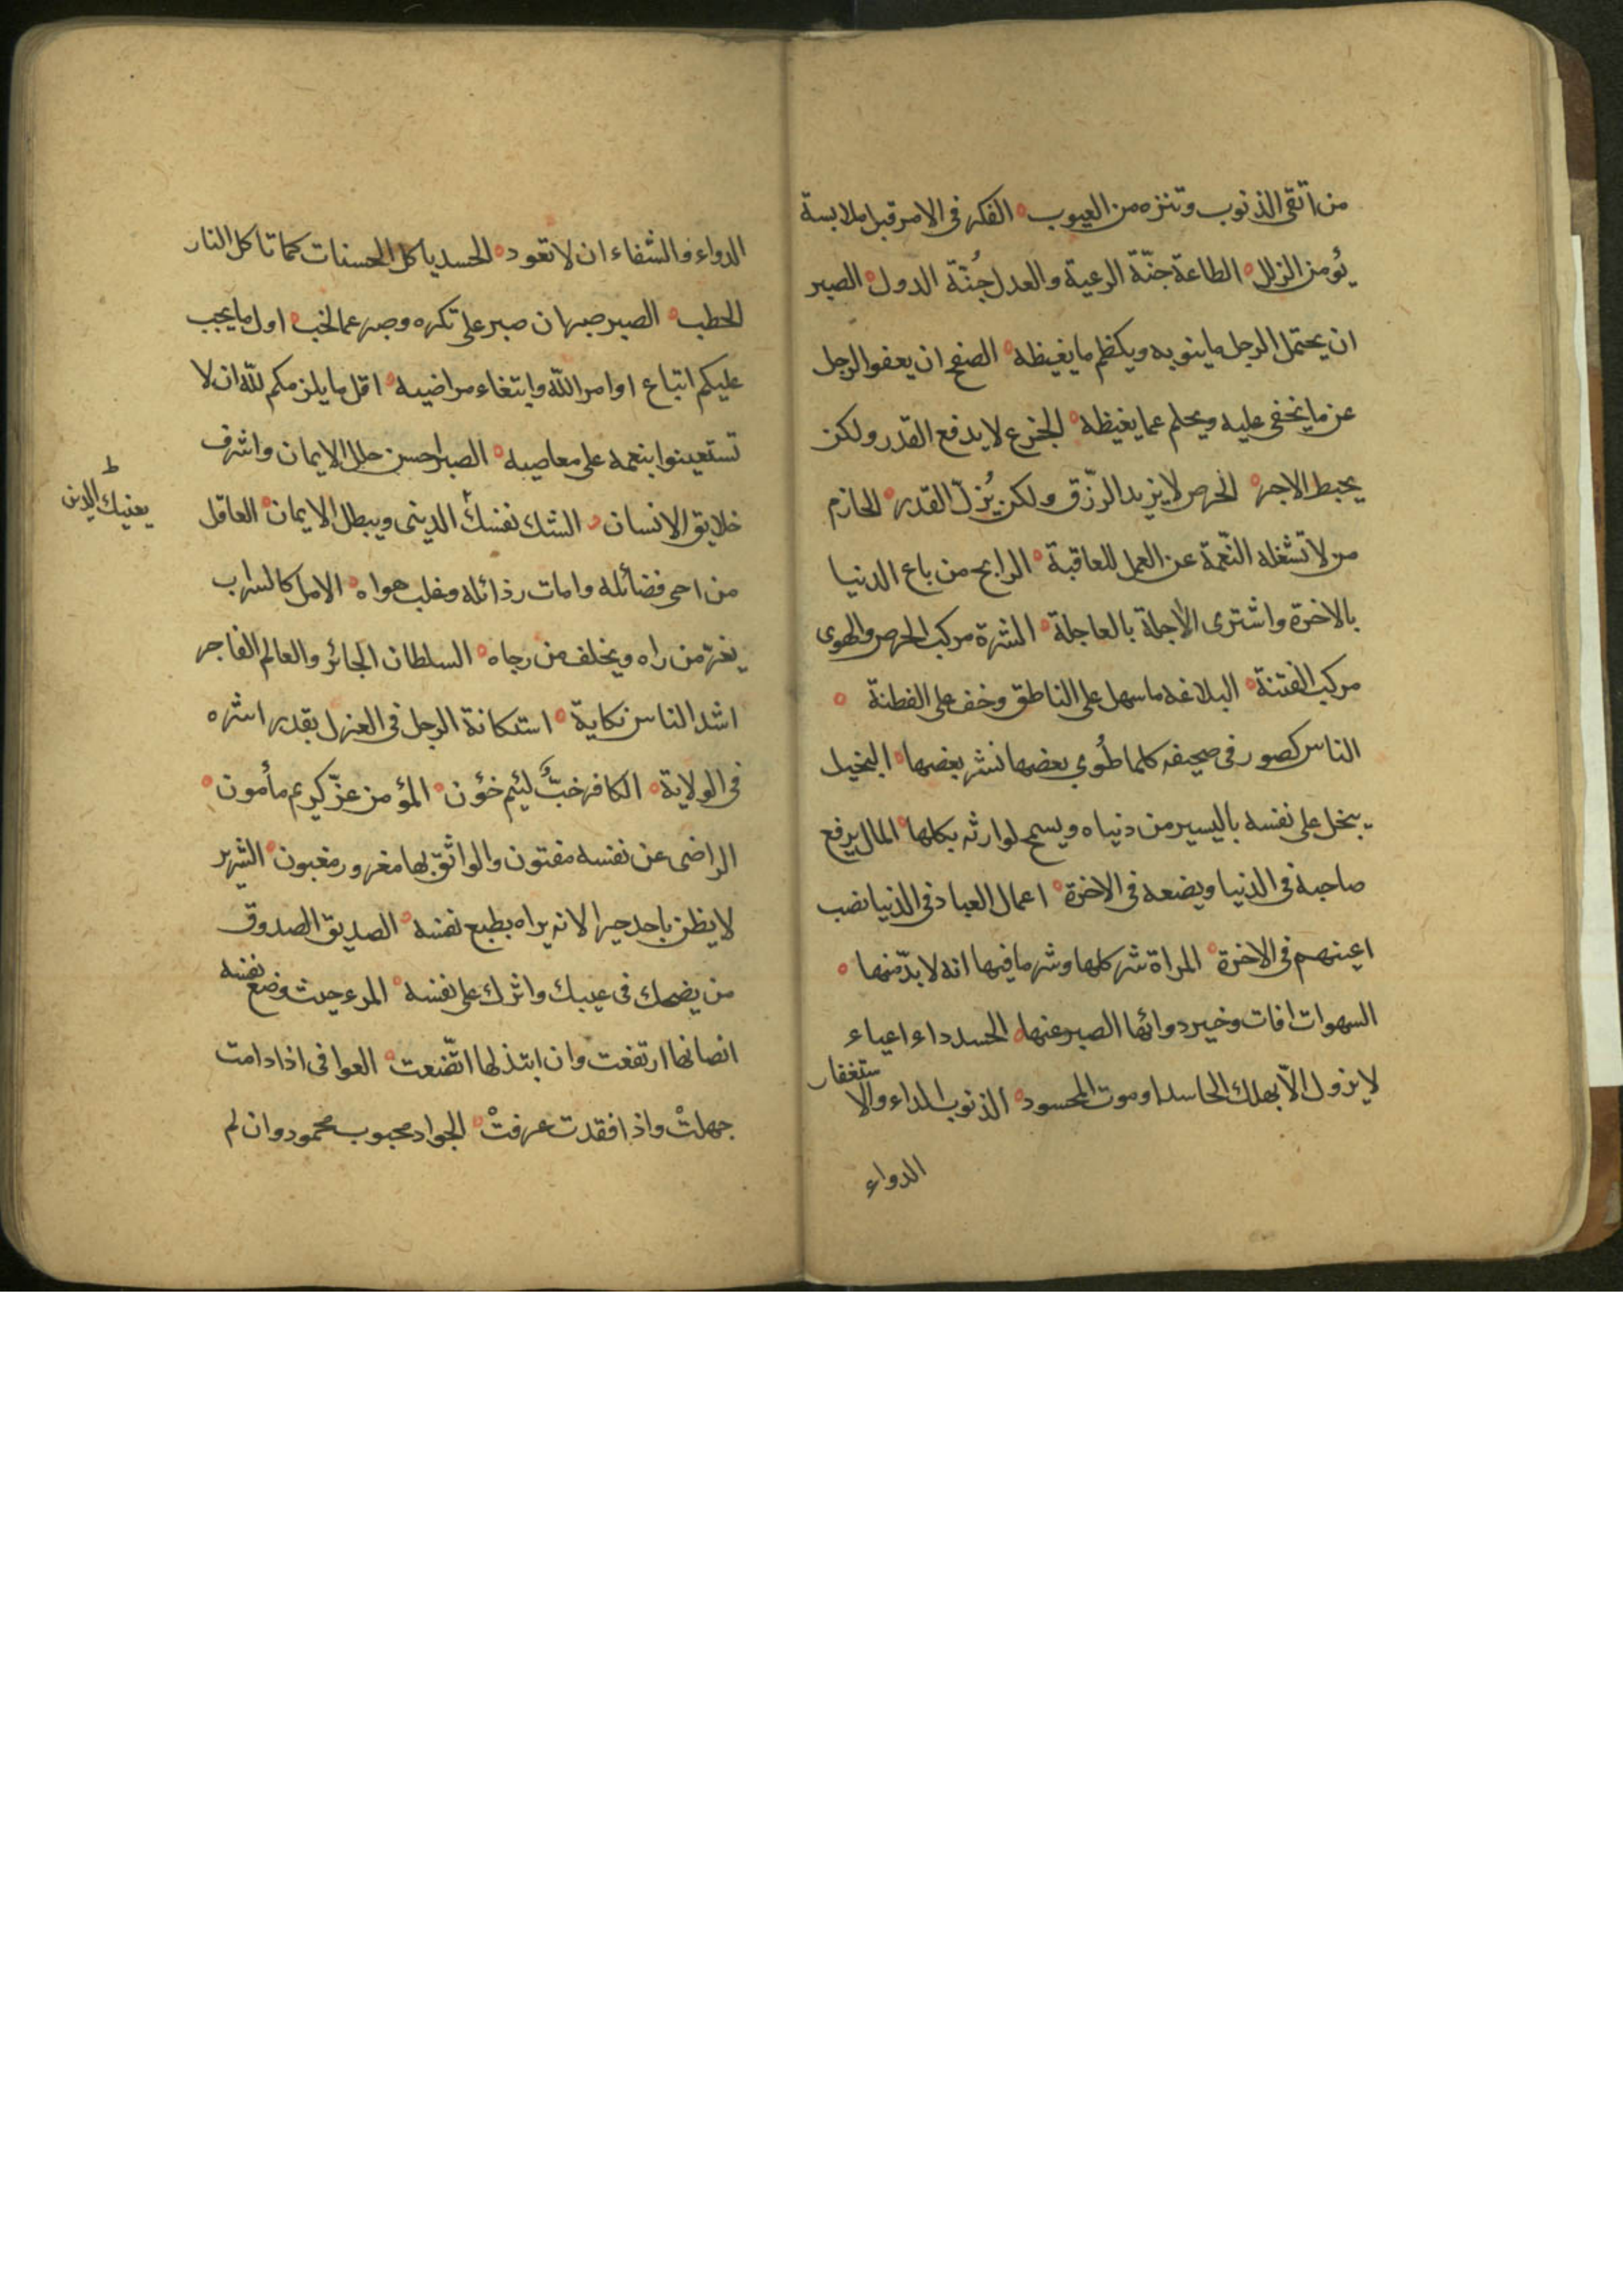 من اتقى الذنوب وتنزه من العيوب ه الفكر فى الامر قبل ملابسة
يؤمن الزلل ه الطاعة جنّة الرعية والعدل جُنّة الدول ه الصبر
ان يحتمل الرجل ما ينوبه ويكظم ما يغيظه ه الصفح ان يعفو الرجل
عن ما يخفى عليه ويحلم عما يغيظه ه الجزع لا يدفع القدر ولكن
يحبط الاجر ه الحرص لا يزيد الرزّق ولكن يُزلّ القدر ه الحازم
من لا تشغله النّعمة عن العمل للعاقبة ه الرابح من باع الدنيا
بالاخرة واشترى الاجلة بالعاجلة ه الشرة مركب الحرص والهوى
مركب الفتنة ه البلاغه ما سهل على الناطق وخف على الفطنة ه
الناس كصور فى صحيفه كلما طُوي بعضها نشر بعضها ه البخيل
يبخل على نفسه باليسير من دنياه ويسمح لوارثه بكلها ه المال يرفع
صاحبه فى الدنيا ويضعه فى الاخرة ه اعمال العباد فى الدنيا نصب
اعينهم فى الاخرة ه المراة شر كلها وشر ما فيها انه لا بدّ منها ه
السهوات افات وخير دوائها الصبر عنها ه الحسد داء اعياء
لا يزول الّا بهلك الحاسد او موت المحسود ه الذنوب الداء والاستغفار
الدواء
الدواء والشفاء ان لا تعود ه الحسد ياكل الحسنات كما تاكل النار
الحطب ه الصبر صبران صبر على تكره وصبر عما تحب ه اول ما يجب
عليكم اتباع اوامر اللّه وابتغاء مراضيه ه اقل ما يلزمكم للّه ان لا
تستعينوا بنعمه على معاصيه ه الصبر احسن حلل الايمان واشرف
خلايق الانسان ه الشك نفسك الدينى ويبطل الايمان ه العاقل
ط
يفسك الدين
من احى فضائله وامات رذائله وغلب هواه ه الامل كالسراب
يغرّ من راه ويخلف من رجاه ه السلطان الجائر والعالم الفاجر
اشد الناس نكاية ه استكانة الرجل فى العزل بقدر اشره
فى الولاية ه الكافر خبٌّ لئيم خؤن ه المؤمن عزّ كريم مأمون ه
الراضى عن نفسه مفتون والواثق بها مغرور مغبون ه الشرير
لا يظن باحد خيرا لانه يراه بطبع نفسه ه الصديق الصدوق
من نصحك فى عيبك واثرك على نفسه ه المرء حيث وضع نفسه
ان صانها ارتفعت وان ابتذلها اتّضعت ه العوافى اذا دامت
جهلتْ واذا فقدت عرفتْ ه الجواد محبوب محمود وان لم